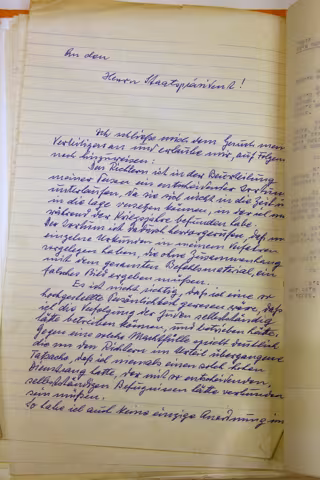 An den
Herrn Staatspräsident!
Ich schließe mich dem Gesuch mein
Verteidigers an und erlaube mir, auf Folgen
noch hinzuweisen:
Den Richtern ist in der Beurteilung
meiner Person ein entscheidender Irrtum
unterlaufen, da sie sich nicht in die Zeit u
in die Lage versetzen können, in der ich m
während der Kriegsjahre befunden habe.
Der Irrtum ist dadurch hervorgerufen, daß m
einzelne Urkunden in meinem Verfahren
vorgelegen haben, die ohne Zusammenhang
mit dem gesamten Befehlsmaterial, ein
falsches Bild ergeben mußten.
Es ist nicht richtig, daß ich eine so
hochgestellte Persönlichkeit gewesen wäre, daß
ich die Verfolgung der Juden selbständig
hätte betreiben können, und betrieben hätte.
Gegen eine solche Machtfülle spricht deutlich
die von den Richtern im Urteil übergangene
Tatsache, daß ich niemals einen solch hohen
Dienstrang hatte, der mit so entscheidenden,
selbständigen Befugnissen hätte verbunden
sein müßen.
So habe ich auch keine einzige Anordnung im